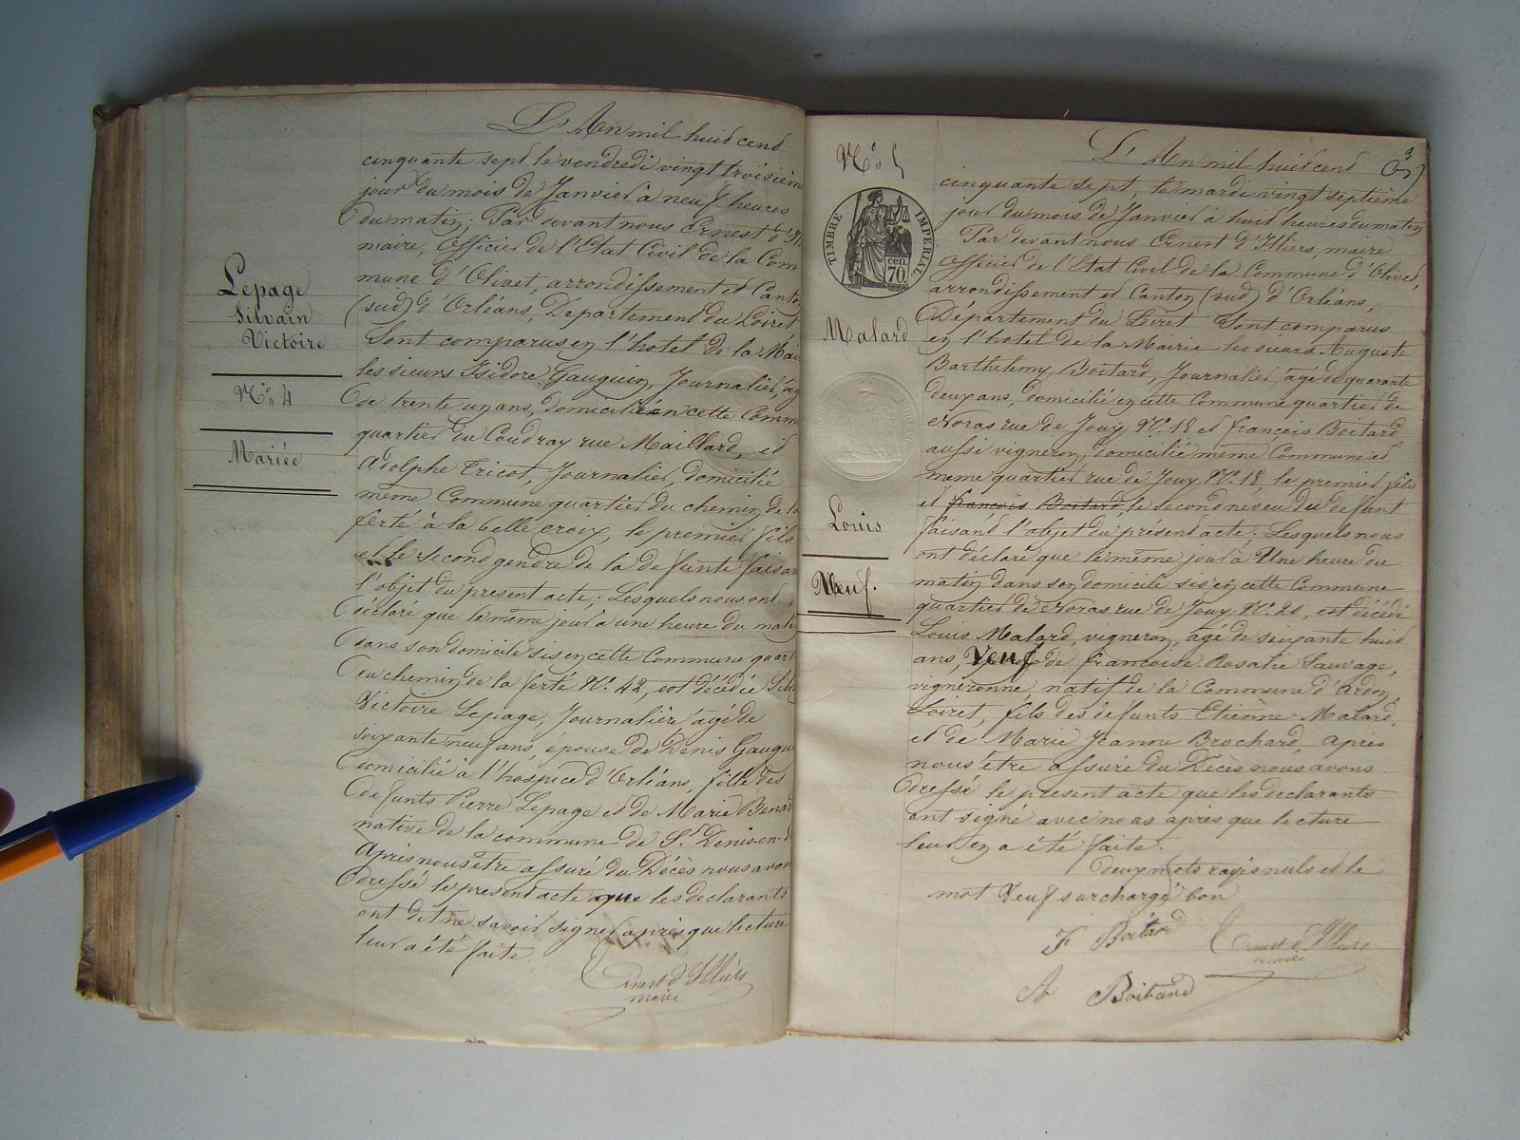 L'An mil huit cent
cinquante sept, le vendredi vingt troisièm
jour du mois de Janvier à neuf heures
du matin; Par devant nous Ernest d'Il
maire, Officier de l'Etat Civil de la Com
mune d'Olivet, arrondissement et Canton
(sud) d'Orléans, Département du Loiret
Sont comparus en l'hotel de la Mai
les sieurs Isidore Gauguin, Journalier, ag
de trente un ans, domicilié en cette Comm
quartier du Coudray rue Maillard, et
Adolphe Tricot, Journalier, domicilié
même Commune quartier du chemin de la
ferté à la belle croix, le premier fils
et le second gendre de la defunte faisan
l'objet du present acte; Lesquels nous ont
déclaré que le même jour à une heure du mati
dans son domicile sis en cette Commune quart
du chemin de la ferté No. 42, est décédée Silv
Victoire Lepage, Journalière agée de
soixante neuf ans, épouse de Denis Gaugu
domicilié à l'hospice d'Orléans, fille des
defunts Pierre Lepage et de Marie Benoi
native de la commune de St. Denis en
Après nous être assuré du Décès nous avon
dressé le present acte que les declarants
ont dit ne savoir signer après que lecture
leur a été faite.
Ernest d'Illiers
maire
Lepage
Silvain
Victoire
No. 4
Mariée
3
No. 5
TIMBRE IMPERIAL
70 cen.
Malard
Louis
Veuf.
L'An mil huit cent
cinquante sept, le mardi vingt septième
jour du mois de Janvier à huit heures du matin
Par devant nous Ernest d'Illiers, maire
Officier de l'Etat Civil de la Commune d'Olivet,
arrondissement et Canton (sud) d'Orléans,
Département du Loiret Sont comparus
en l'hotel de la Mairie les sieurs Auguste
Barthelemy Boitard, Journalier, agé de quarante
deux ans, domicilié en cette Commune quartier de
rue de Jouy No. 18 et francois Boitard
aussi vigneron, domicilié même Commune et
meme quartier rue de Jouy No. 18, le premier fils
et francois Boitard le second neveu du defunt
faisant l'objet du présent acte; Lesquels nous
ont déclaré que le même jour à Une heure du
matin dans son domicile sis en cette Commune
quartier de rue de Jouy No. 20, est décédé
Louis Malard, vigneron, âgé de soixante huit
ans, Veuf de francoise Rosalie Sauvage,
vigneronne, natif de la Commune d'Ardon
Loiret, fils des défunts Etienne Malard,
et de Marie Jeanne Brochard Après
nous être assuré du Décès nous avons
dressé le present acte que les declarants
ont signé avec nous après que lecture
leur en a été faite.
deux mots rayés nuls et le
mot Veuf surchargé bon
F Boitard Ernest d'Illiers
maire
A Boitard